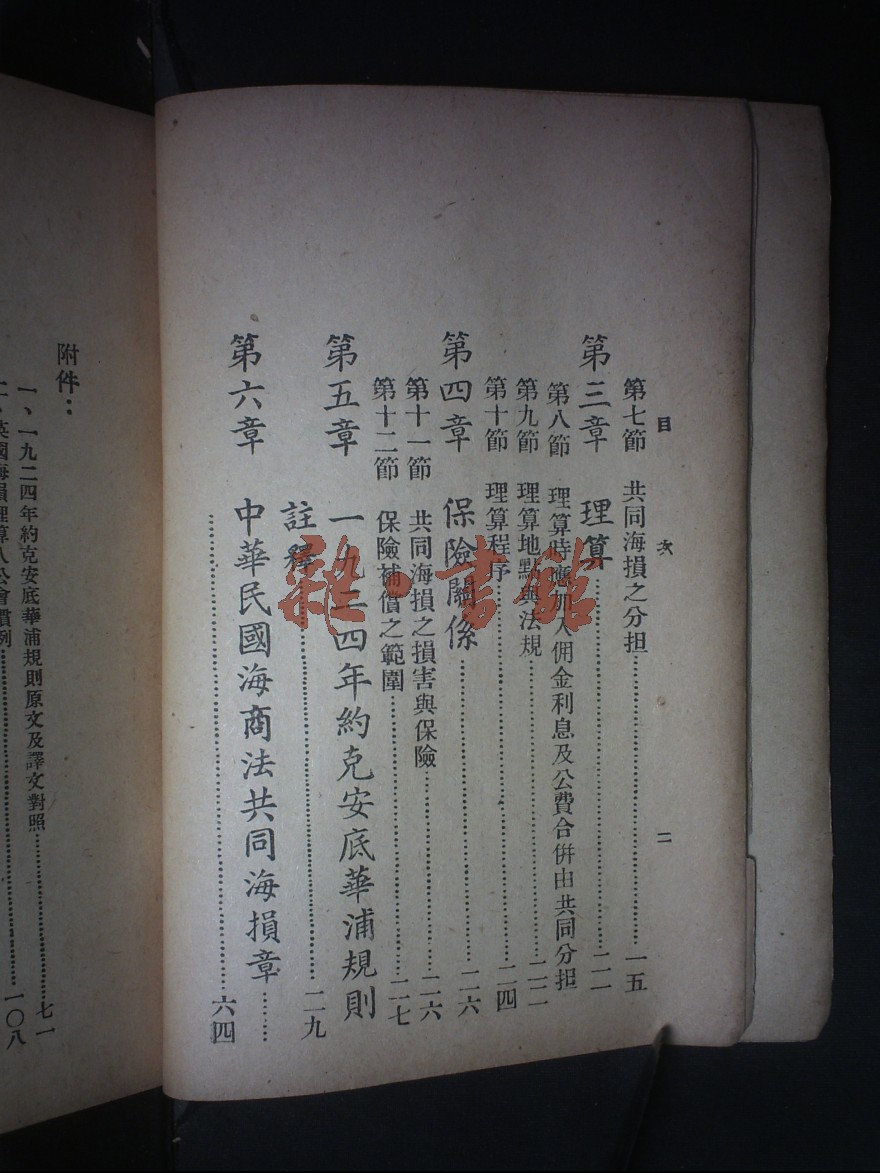 目 次 二
第七節 共同海損之分担………一五
第三章 理算………二一
第八節 理算時應加入佣金利息及公費合併由共同分担
第九節 理算地點與法規………二二
第十節 理算程序………二四
第四章 保險關係………二六
第十一節 共同海損之損害與保險………二六
第十二節 保險補償之範圍………二七
第五章 一九二四年約克安底華浦規則
註釋………二九
第六章 中華民國海商法共同海損章………
………六四
附件：
一、一九二四年約克安底華浦規則原文及譯文對照………七一
二、英國海損理算人公會慣例………一〇八
雜·書館